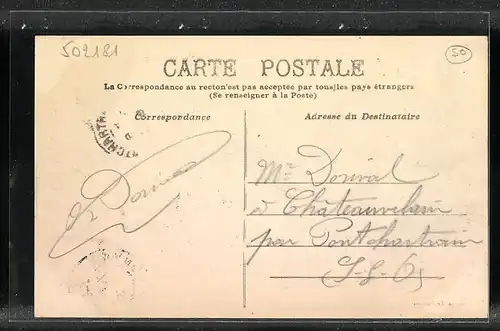 502181
50
CARTE POSTALE
La Correspondance au recto n'est pas acceptée par tous les pays étrangers
(Se renseigner à la Poste)
Correspondance
Adresse du Destinataire
TCHARTR
Mr Dorival
à Châteauvelain
par Pontchartrain
S-&-O